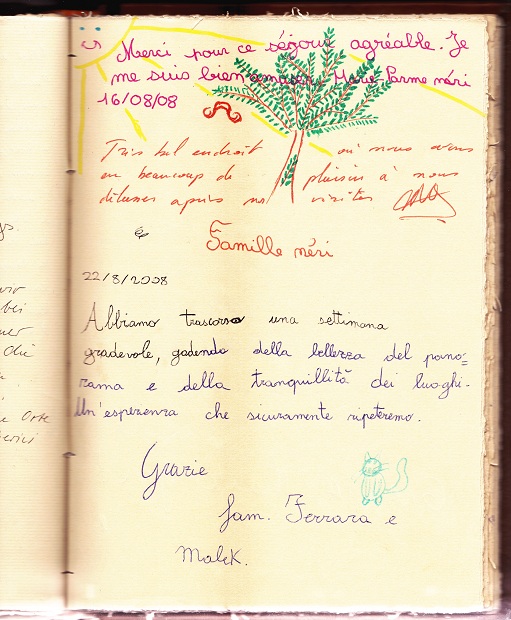 Merci pour ce séjour agréable. Je
me suis bien amusée, Marie-Parme néri
16/08/08
Très bel endroit où nous avons
eu beaucoup de plaisir à nous
après visites
Famille néri
22/8/2008
Abbiamo trascorso una settimana
gradevole, godendo della bellezza del pano=
rama e della tranquillità dei luoghi.
Un'esperienza che sicuramente ripeteremo.
Grazie
fam. Ferrara e
Malek.